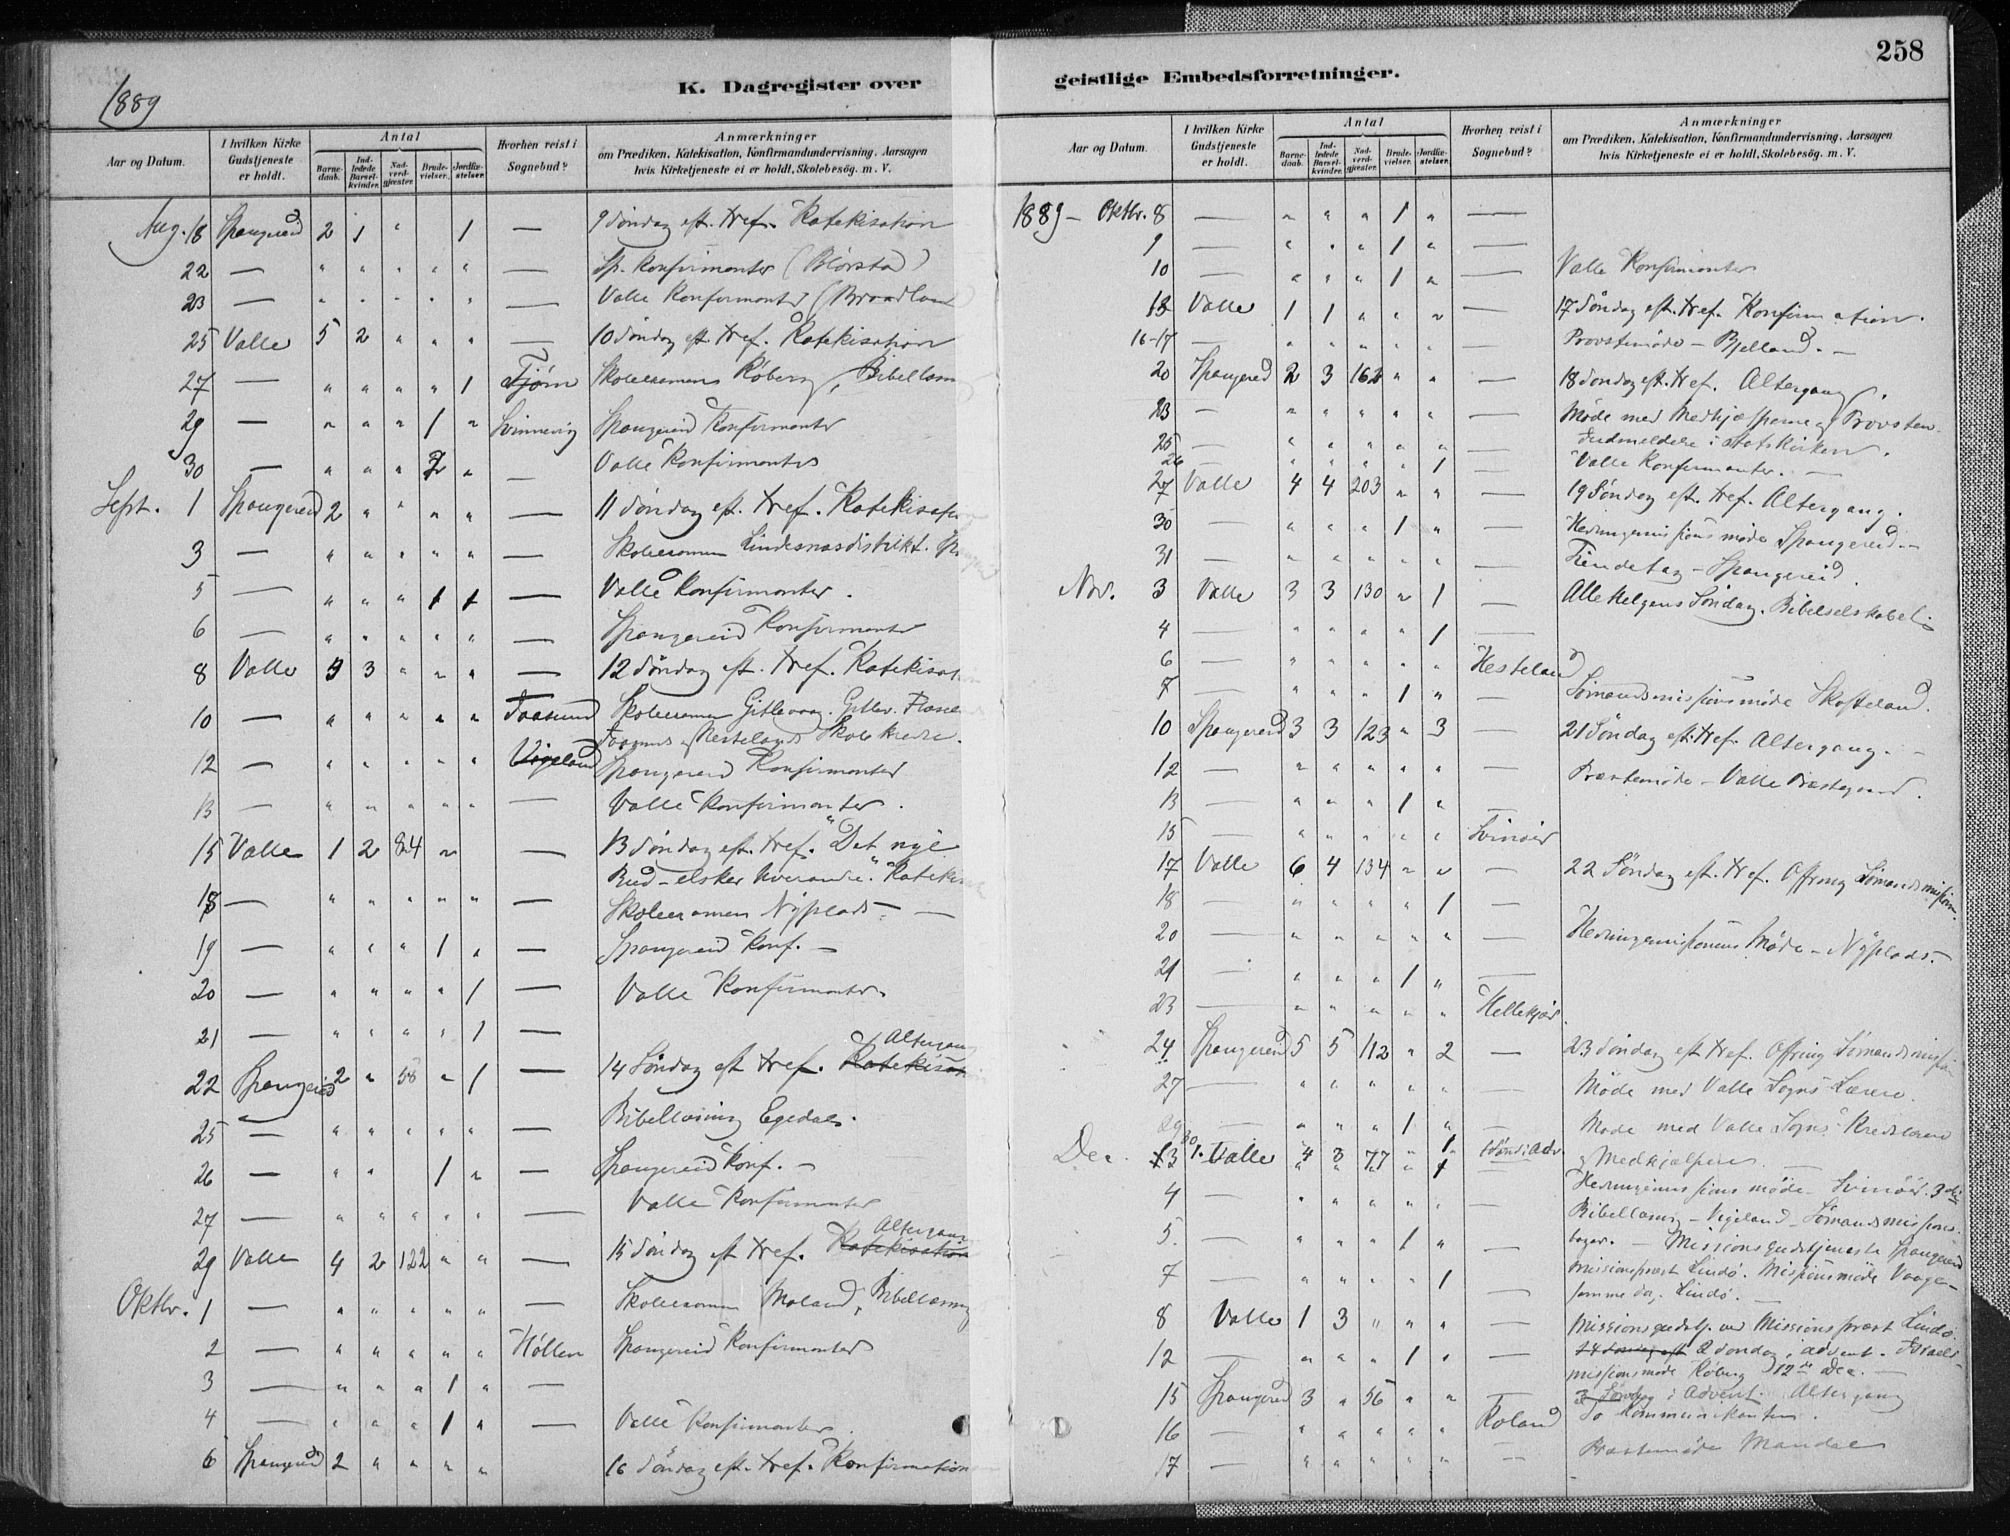 258
1889
K. Dagregister over geistlige Embedsforretninger.
Aar og Datum.
I hvilken Kirke Gudstjeneste er holdt.
Antal
Barne-daab.
Ind-ledede Barsel-kvinder.
Nad-verd-gjæster.
Brude-vielser.
Jordfæ-stelser.
Hvorhen reist i Sognebud?
Anmærkninger
om Prædiken, Katekisation, Konfirmandundervisning, Aarsagen
hvis Kirketjeneste ei er holdt, Skolebesög. m. V.
Aug. 18 Spangereid 2 1 " 1 — 9 Söndag eft. tref. Katekisation
22 — " " " " " — Sp. Konfirmanter
23 — " " " " " — Valle Konfirmanter
25 Valle 5 2 " " " — 10 Söndag eft. tref. Katekisation
27 — " " " " 1 Tjörn Skoleexamen Röberg, Bibellæsn
29 — " " " 1 " Svinnevig Spangereid Konfirmanter
30 — " " " 2 " — Valle Konfirmanter
Sept. 1 Spangereid 2 " " " " — 11 Söndag eft. tref. Katekisation
3 — " " " " " — Skoleexamen Lindesnæsdistrikt.
5 — " " " 1 1 — Valle Konfirmanter.
6 — " " " " " — Spangereid Konfirmanter
8 Valle 5 3 " " " — 12 Söndag eft. tref. Katekisation
10 — " " " " " Faasund Skoleexamen Gitlevaag.
Skolekredse.
12 — " " " " " Vigeland Spangereid Konfirmanter
13 — " " " " " — Valle Konfirmanter.
15 Valle 1 2 84 " — 13 Söndag eft. tref. "Det nye
Bud – elsker hverandre". Katekis
18 — " " " " " — Skoleexamen Nyplads. —
19 — " " " 1 " — Spangereid Konf. —
20 — " " " " 1 — Valle Konfirmanter.
21 — " " " " 1 —
Altergang
22 Spangereid 2 " 58 " 1 — 14 Söndag eft tref. Katekisation
25 — " " " " " — Bibellæsning Egedal.
26 — " " " 1 " — Spangereid Konf. —
27 — " " " " " — Valle Konfirmanter
Altergang
29 Valle 4 2 122 " " — 15 Söndag eft tref. Katekisation
Oktbr. 1 — " " " " " — Skoleexamen Moland, Bibellæsning
2 — " " " " " Höllen Spangereid Konfirmanter
3 — " " " 1 " —
4 — " " " 1 " — Valle Konfirmanter.
6 Spangereid 2 " " " " 16 Söndag eft. tref. Konfirmation
Aar og Datum.
I hvilken Kirke Gudstjeneste er holdt.
Antal
Barne-daab.
Ind-ledede Barsel-kvinder.
Nad-verd-gjæster.
Brude-vielser.
Jordfæ-stelser.
Hvorhen reist i Sognebud?
Anmærkninger
om Prædiken, Katekisation, Konfirmandundervisning, Aarsagen
hvis Kirketjeneste ei er holdt, Skolebesög. m. V.
1889 – Oktbr. 8 — " " " 1 " —
9 — " " " 1 " —
10 — " " " 1 " — Valle Konfirmanter
13 Valle 1 1 " " " — 17 Söndag eft. tref. Konfirmation.
16-17 — " " " " " — Provstemöde – Bjelland. —
20 Spangereid 2 3 162 " " — 18 Söndag eft. tref. Altergang.
23 — " " " " " — Möde med Medhjælperne og Provsten.
25 — " " " " " — Indmeldelse i Statskirken.
26 — " " " " 1 — Valle Konfirmanter. —
27 Valle 4 4 203 " " — 19 Söndag eft. tref. Altergang.
30 — " " " 1 " — Hedningemissionsmöde Spangereid —
31 — " " " " " — Tiendetag – Spangereid.
Nov. 3 Valle 3 3 130 " 1 — Allehelgens Söndag. Bibelselskabet
4 — " " " " 1 —
6 — " " " " " Hesteland
7 — " " " 1 " — Sömandsmissionsmöde Skofteland.
10 Spangereid 3 3 123 " 3 — 21 Söndag eft. tref. Altergang. —
12 — " " " " " Præstemöde – Valle Præstegaard.
13 — " " " 1 " —
15 — " " " " " Svinöer
17 Valle 6 4 134 " " — 22 Söndag eft. tref. Offring Sömandsmission.
18 — " " " " 1 —
20 — " " " " " — Hedningemissionens Möde – Nyplads. —
21 — " " " 1 " —
23 — " " " " " Hellekjær.
24 Spangereid 5 5 112 " 2 — 23 Söndag eft tref. Offring Sömandsmission
27 — " " " " " Möde med Valle Sogns Lærere.
29 — " " " 1 " — Möde med Valle Sogns Kredslærere
Dec. 1. Valle 4 3 77 " 1 1 Sönd. i Adv. og Medhjælpere —
4 — " " " " " — Hedningemissionsmöde – Svinöer. 3
Bibellæsng – Vigeland – Sömandsmissions-
5 — " " " 1 " — Missionsgudstjeneste Spangereid
7 — " " " " 1 — Missionspræst Lindö. Missionsmöde Vaage –
samme Dag. Lindö. —
8 Valle 1 3 " " " — Missionsgudstj. ved Missionspræst Lindö.
12 — " " " 1 " — 2 Söndag i Advent. Israels-
missionsmöde Röberg 12te Dec. —
15 Spangereid 3 " 56 " " — 3 Söndag i Advent. Altergang
16 — " " " " " Roland To Kommunikanter.
17 — " " " " " — Præstemöde Mandal